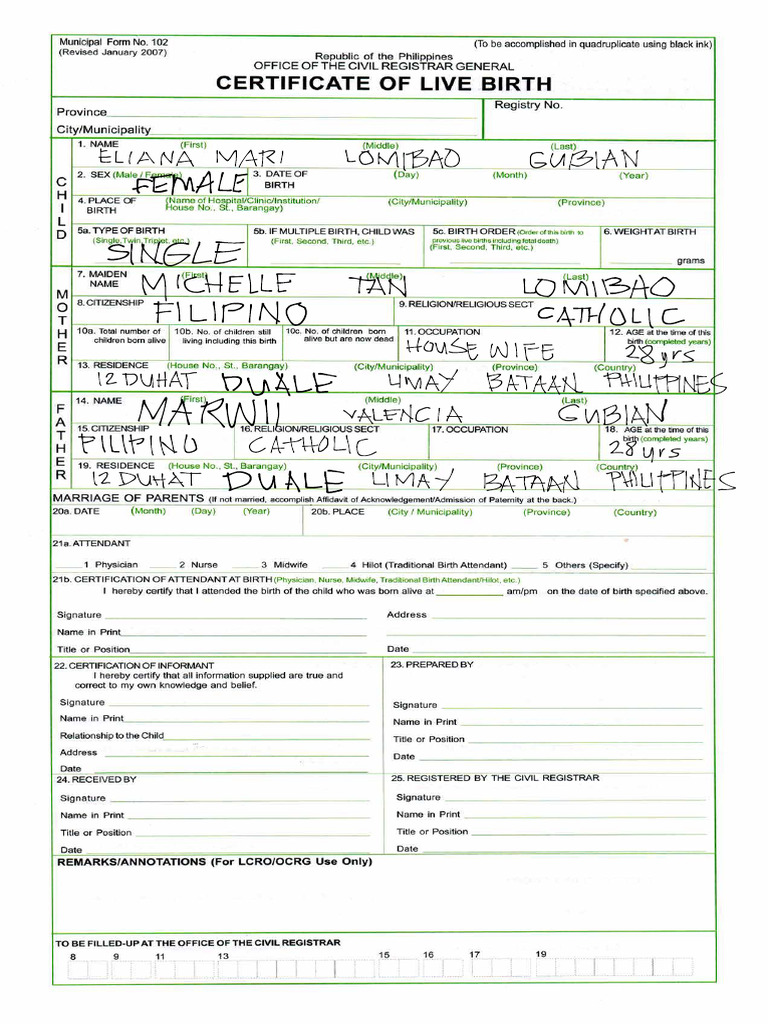 Municipal Form No. 102 (To be accomplished in quadruplicate using black ink)
(Revised January 2007)
Republic of the Philippines
OFFICE OF THE CIVIL REGISTRAR GENERAL
CERTIFICATE OF LIVE BIRTH
Province
Registry No.
City/Municipality
CHILD
1. NAME (First) (Middle) (Last)
ELIANA MARI LOMIBAO GUBIAN
2. SEX (Male / Female) 3. DATE OF BIRTH (Day) (Month) (Year)
FEMALE
4. PLACE OF BIRTH (Name of Hospital/Clinic/Institution/ House No., St., Barangay) (City/Municipality) (Province)
5a. TYPE OF BIRTH (Single, Twin, Triplet, etc.) 5b. IF MULTIPLE BIRTH, CHILD WAS (First, Second, Third, etc.) 5c. BIRTH ORDER (Order of this birth to previous live births including fetal death) (First, Second, Third, etc.) 6. WEIGHT AT BIRTH
SINGLE grams
MOTHER
7. MAIDEN NAME (First) (Middle) (Last)
MICHELLE TAN LOMIBAO
8. CITIZENSHIP 9. RELIGION/RELIGIOUS SECT
FILIPINO CATHOLIC
10a. Total number of children born alive 10b. No. of children still living including this birth 10c. No. of children born alive but are now dead 11. OCCUPATION 12. AGE at the time of this birth (completed years)
HOUSE WIFE 28 yrs
13. RESIDENCE (House No., St., Barangay) (City/Municipality) (Province) (Country)
12 DUHAT DUALE LIMAY BATAAN PHILIPPINES
FATHER
14. NAME (First) (Middle) (Last)
MARWIL VALENCIA GUBIAN
15. CITIZENSHIP 16. RELIGION/RELIGIOUS SECT 17. OCCUPATION 18. AGE at the time of this birth (completed years)
PILIPINO CATHOLIC 28 yrs
19. RESIDENCE (House No., St., Barangay) (City/Municipality) (Province) (Country)
12 DUHAT DUALE LIMAY BATAAN PHILIPPINES
MARRIAGE OF PARENTS (If not married, accomplish Affidavit of Acknowledgement/Admission of Paternity at the back.)
20a. DATE (Month) (Day) (Year) 20b. PLACE (City / Municipality) (Province) (Country)
21a. ATTENDANT
1 Physician 2 Nurse 3 Midwife 4 Hilot (Traditional Birth Attendant) 5 Others (Specify)
21b. CERTIFICATION OF ATTENDANT AT BIRTH (Physician, Nurse, Midwife, Traditional Birth Attendant/Hilot, etc.)
I hereby certify that I attended the birth of the child who was born alive at am/pm on the date of birth specified above.
Signature Address
Name in Print
Title or Position Date
22. CERTIFICATION OF INFORMANT
I hereby certify that all information supplied are true and
correct to my own knowledge and belief.
Signature
Name in Print
Relationship to the Child
Address
Date
23. PREPARED BY
Signature
Name in Print
Title or Position
Date
24. RECEIVED BY
Signature
Name in Print
Title or Position
Date
25. REGISTERED BY THE CIVIL REGISTRAR
Signature
Name in Print
Title or Position
Date
REMARKS/ANNOTATIONS (For LCRO/OCRG Use Only)
TO BE FILLED-UP AT THE OFFICE OF THE CIVIL REGISTRAR
8 9 11 13 15 16 17 19